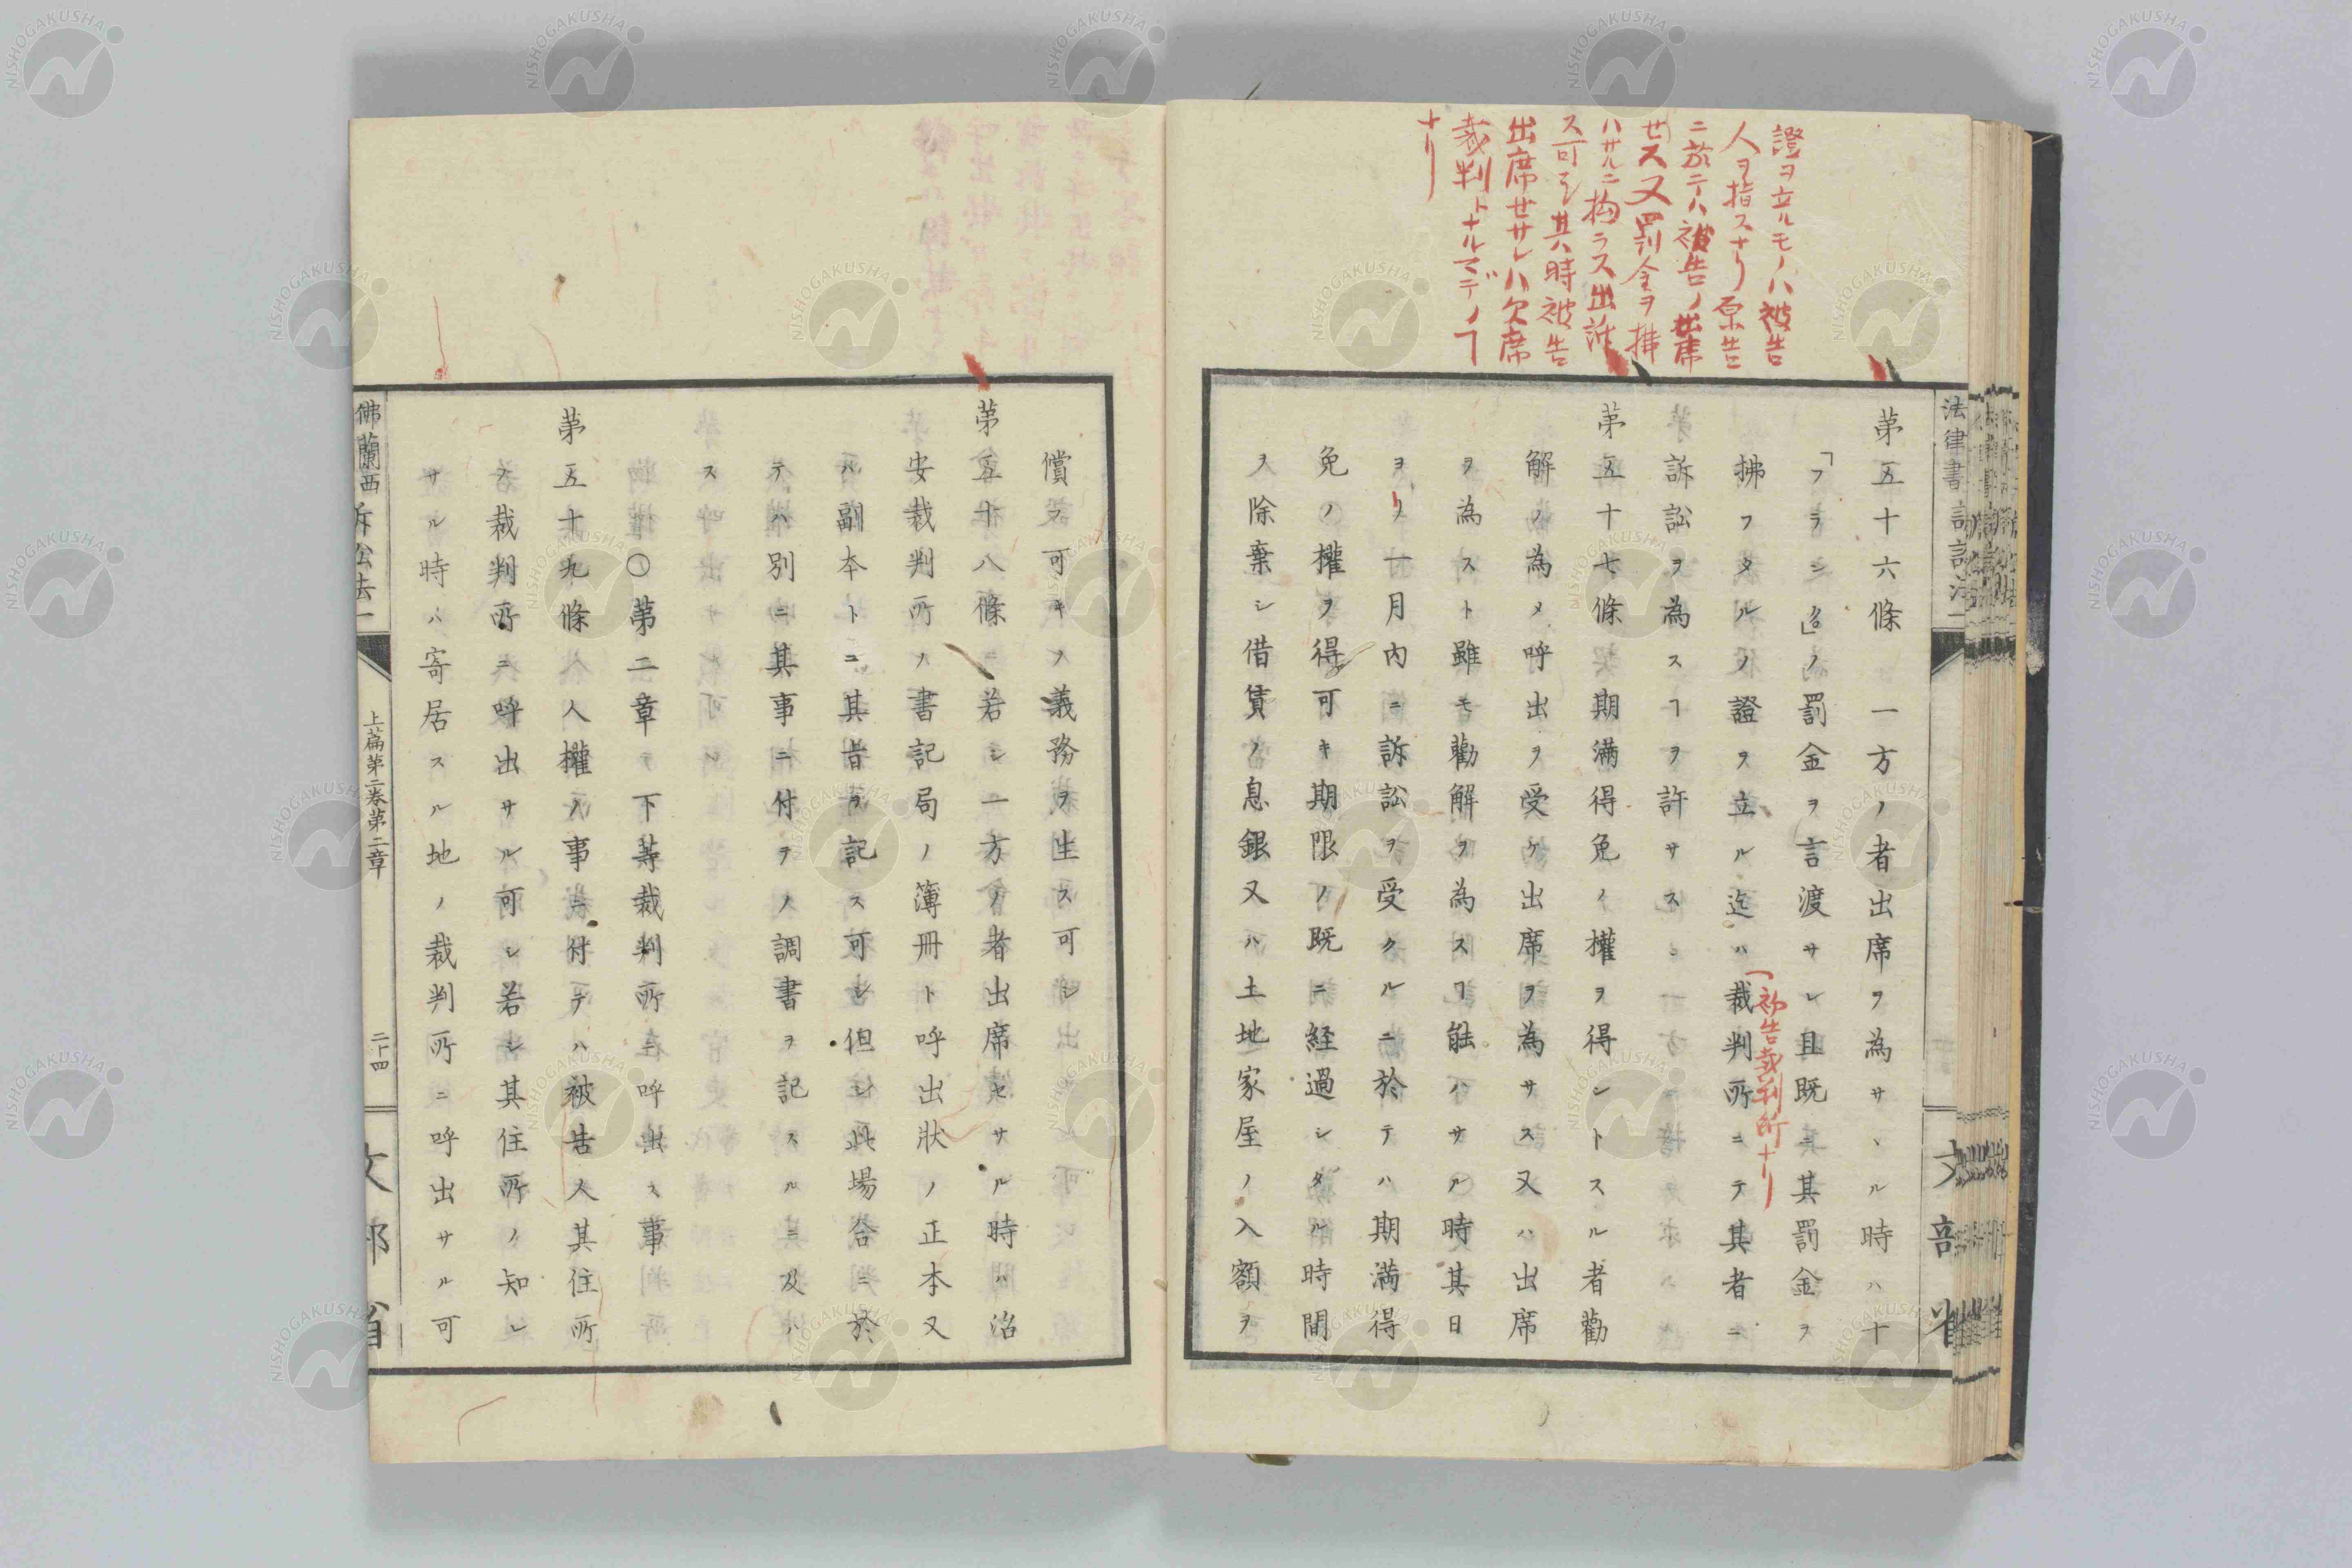 證ヲ立ルモノハ被告
人ヲ指スナリ原告
ニ於テハ被告ノ出席
せス又罰金ヲ拂
ハサルニ拘ラス出訴
ス可シ其時被告
出席せサレハ欠席
裁判トナルマデノヿ
ナリ
法律書
第五十六條 一方ノ者出席ヲ為サヽル時ハ十
「フランク」ノ罰金ヲ言渡サレ且既ニ其罰金ヲ
拂フタルノ證ヲ立ル迄ハ裁判所ニテ其者ニ
(初告裁判所ナリ
訴訟ヲ為スヿヲ許サス
第五十七條 期滿得免ノ權ヲ得ントスル者勸
解ノ為メ呼出ヲ受ケ出席ヲ為サス又ハ出席
ヲ為スト雖モ勸解ヲ為スヿ能ハサル時其日
ヨリ一月内ニ訴訟ヲ受クルニ於テハ期滿得
免ノ權ヲ得可キ期限ノ既ニ経過シタル時間
ヲ除棄シ借賃ノ息銀又ハ土地家屋ノ入額ヲ
文部省
償フ可キノ義務ヲ生ス可シ
第五十八條 若シ一方ノ者出席セサル時ハ治
安裁判所ノ書記局ノ簿冊ト呼出狀ノ正本又
ハ副本トニ其旨ヲ記ス可シ但シ此場合ニ於
テハ別ニ其事ニ付テノ調書ヲ記スルニ及ハ
ス
〇第二章 下等裁判所ニ呼出ス事
第五十九條 人權ノ事ニ付テハ被告人其住所
ノ裁判所ニ呼出サル可シ若シ其住所ノ知レ
サル時ハ寄居スル地ノ裁判所ニ呼出サル可
佛蘭西訴訟法一
上篇第二巻第二章
二十四
文部省